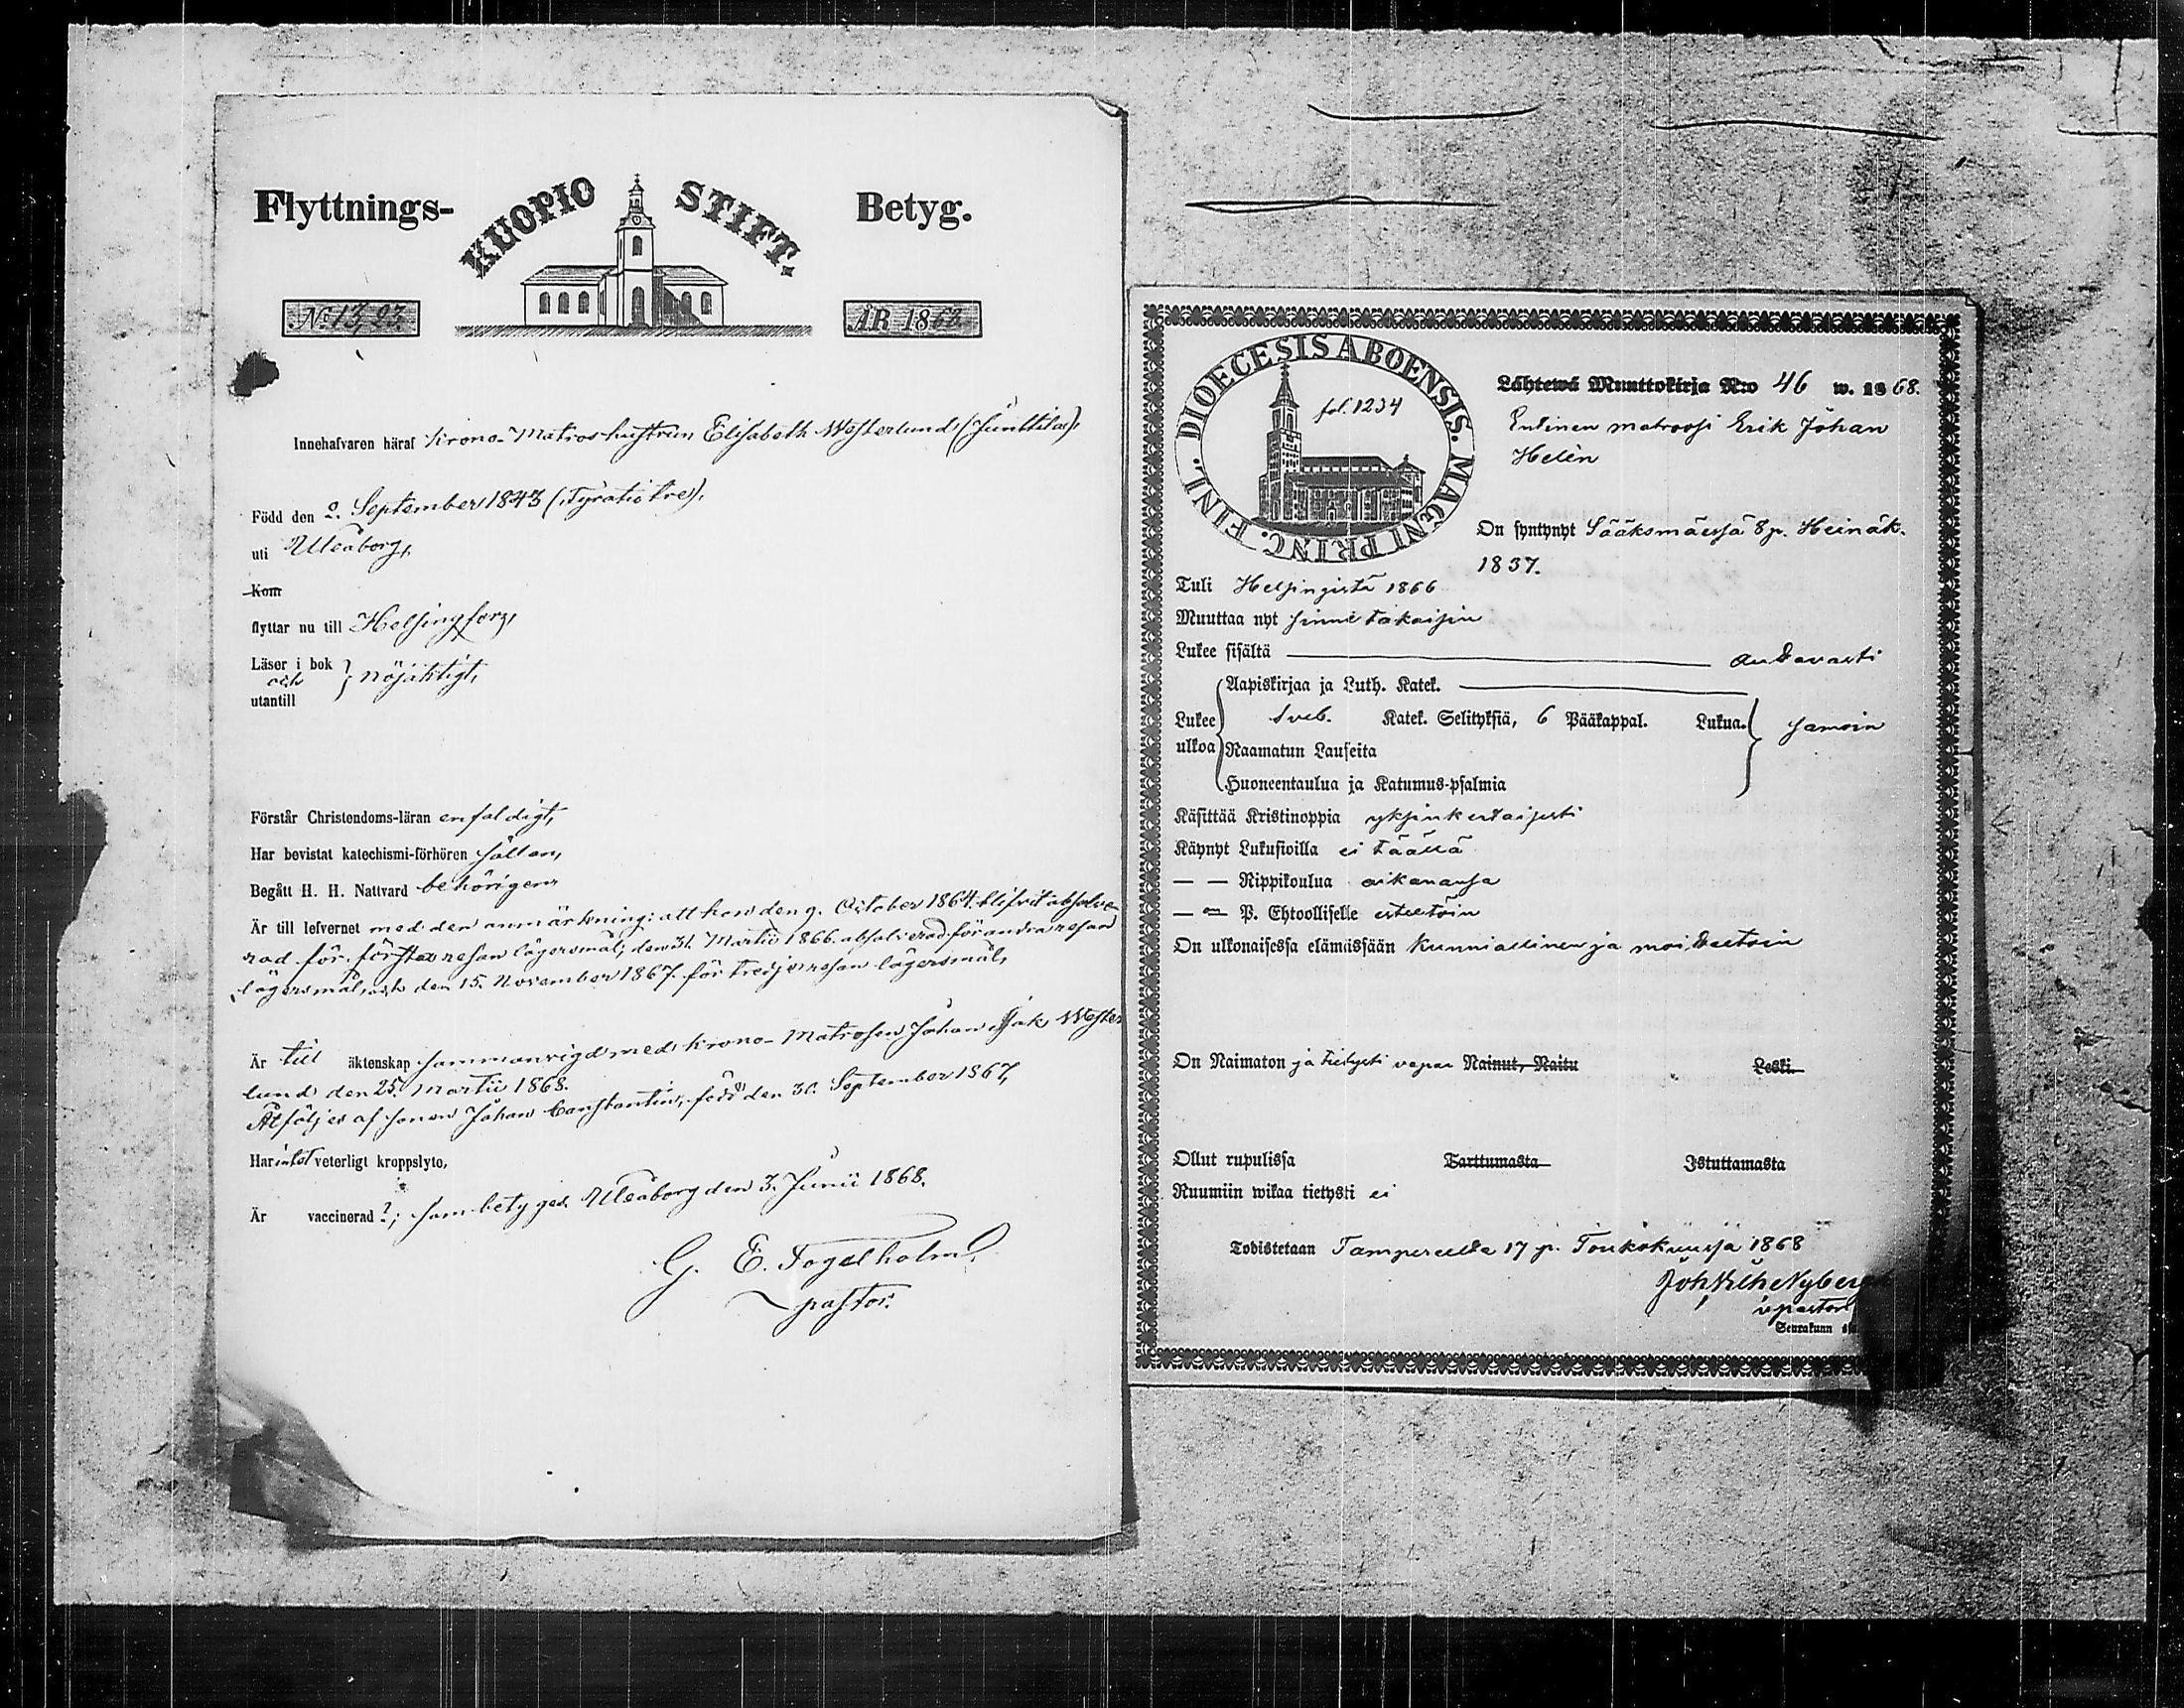 Flyttnings-
KUOPIO STIFT.
Betyg.
No 13,23.
ÅR 1868.
Innehafvaren häraf Krono-Matroshustrun Elisabeth Westerlund (Junttila),
Född den 2. September 1843 (Fyratiotre),
uti Uleåborg,
Kom
flyttar nu till Helsingfors,
Läser i bok
och } nöjaktigt,
utantill
Förstår Christendoms-läran enfaldigt,
Har bevistat katechismi-förhören sällan,
Begått H. H. Nattvard behörigen
Är till lefvernet med den anmärkning: att hon den 9. October 1864 blifvit absolve-
rad för första resan lägersmål; den 31. Martii 1866 absolverad för andra resan
lägersmål, och den 15. November 1867 för tredje resan lägersmål,
Är till äktenskap sammanvigd med Krono-Matrosen Johan Isak Wester
lund den 25. Martii 1868.
Åtföljes af sonen Johan Constantin, född den 30. September 1867,
Har intet veterligt kroppslyte,
Är vaccinerad ?; som betygas. Uleåborg den 3. Junii 1868.
G. E. Fogelholm
pastor.
DIOECESIS ABOENSIS. MAGNI PRINC. FINL.
fol. 1234
Lähtewä Muuttokirja N:o 46 w. 1868.
Entinen matroosi Erik Johan
Helèn
On syntynyt Sääksmäessä 8 p. Heinäk.
1837.
Tuli Helsingistä 1866
Muuttaa nyt sinne takaisin
Lukee sisältä auttavasti
Aapiskirjaa ja Luth. Katek.
Lukee Sveb. Katek. Selityksiä, 6 Pääkappal. Lukua. samoin
ulkoa Raamatun Lauseita
Huoneentaulua ja Katumus-psalmia
Käsittää Kristinoppia yksinkertaisesti
Käynyt Lukusioilla ei täällä
— — Rippikoulua aikanansa
— on P. Ehtoolliselle esteetöin
On ulkonaisessa elämässään kunniallinen ja moitteetoin
On Naimaton ja tietysti vapaa Nainut, Naitu Leski.
Ollut rupulissa Tarttumasta Istuttamasta
Ruumiin wikaa tietysti ei
Todistetaan Tampereella 17 p. Toukokuussa 1868
Joh. Vilh. Nyberg
v. pastor
Seurakunn